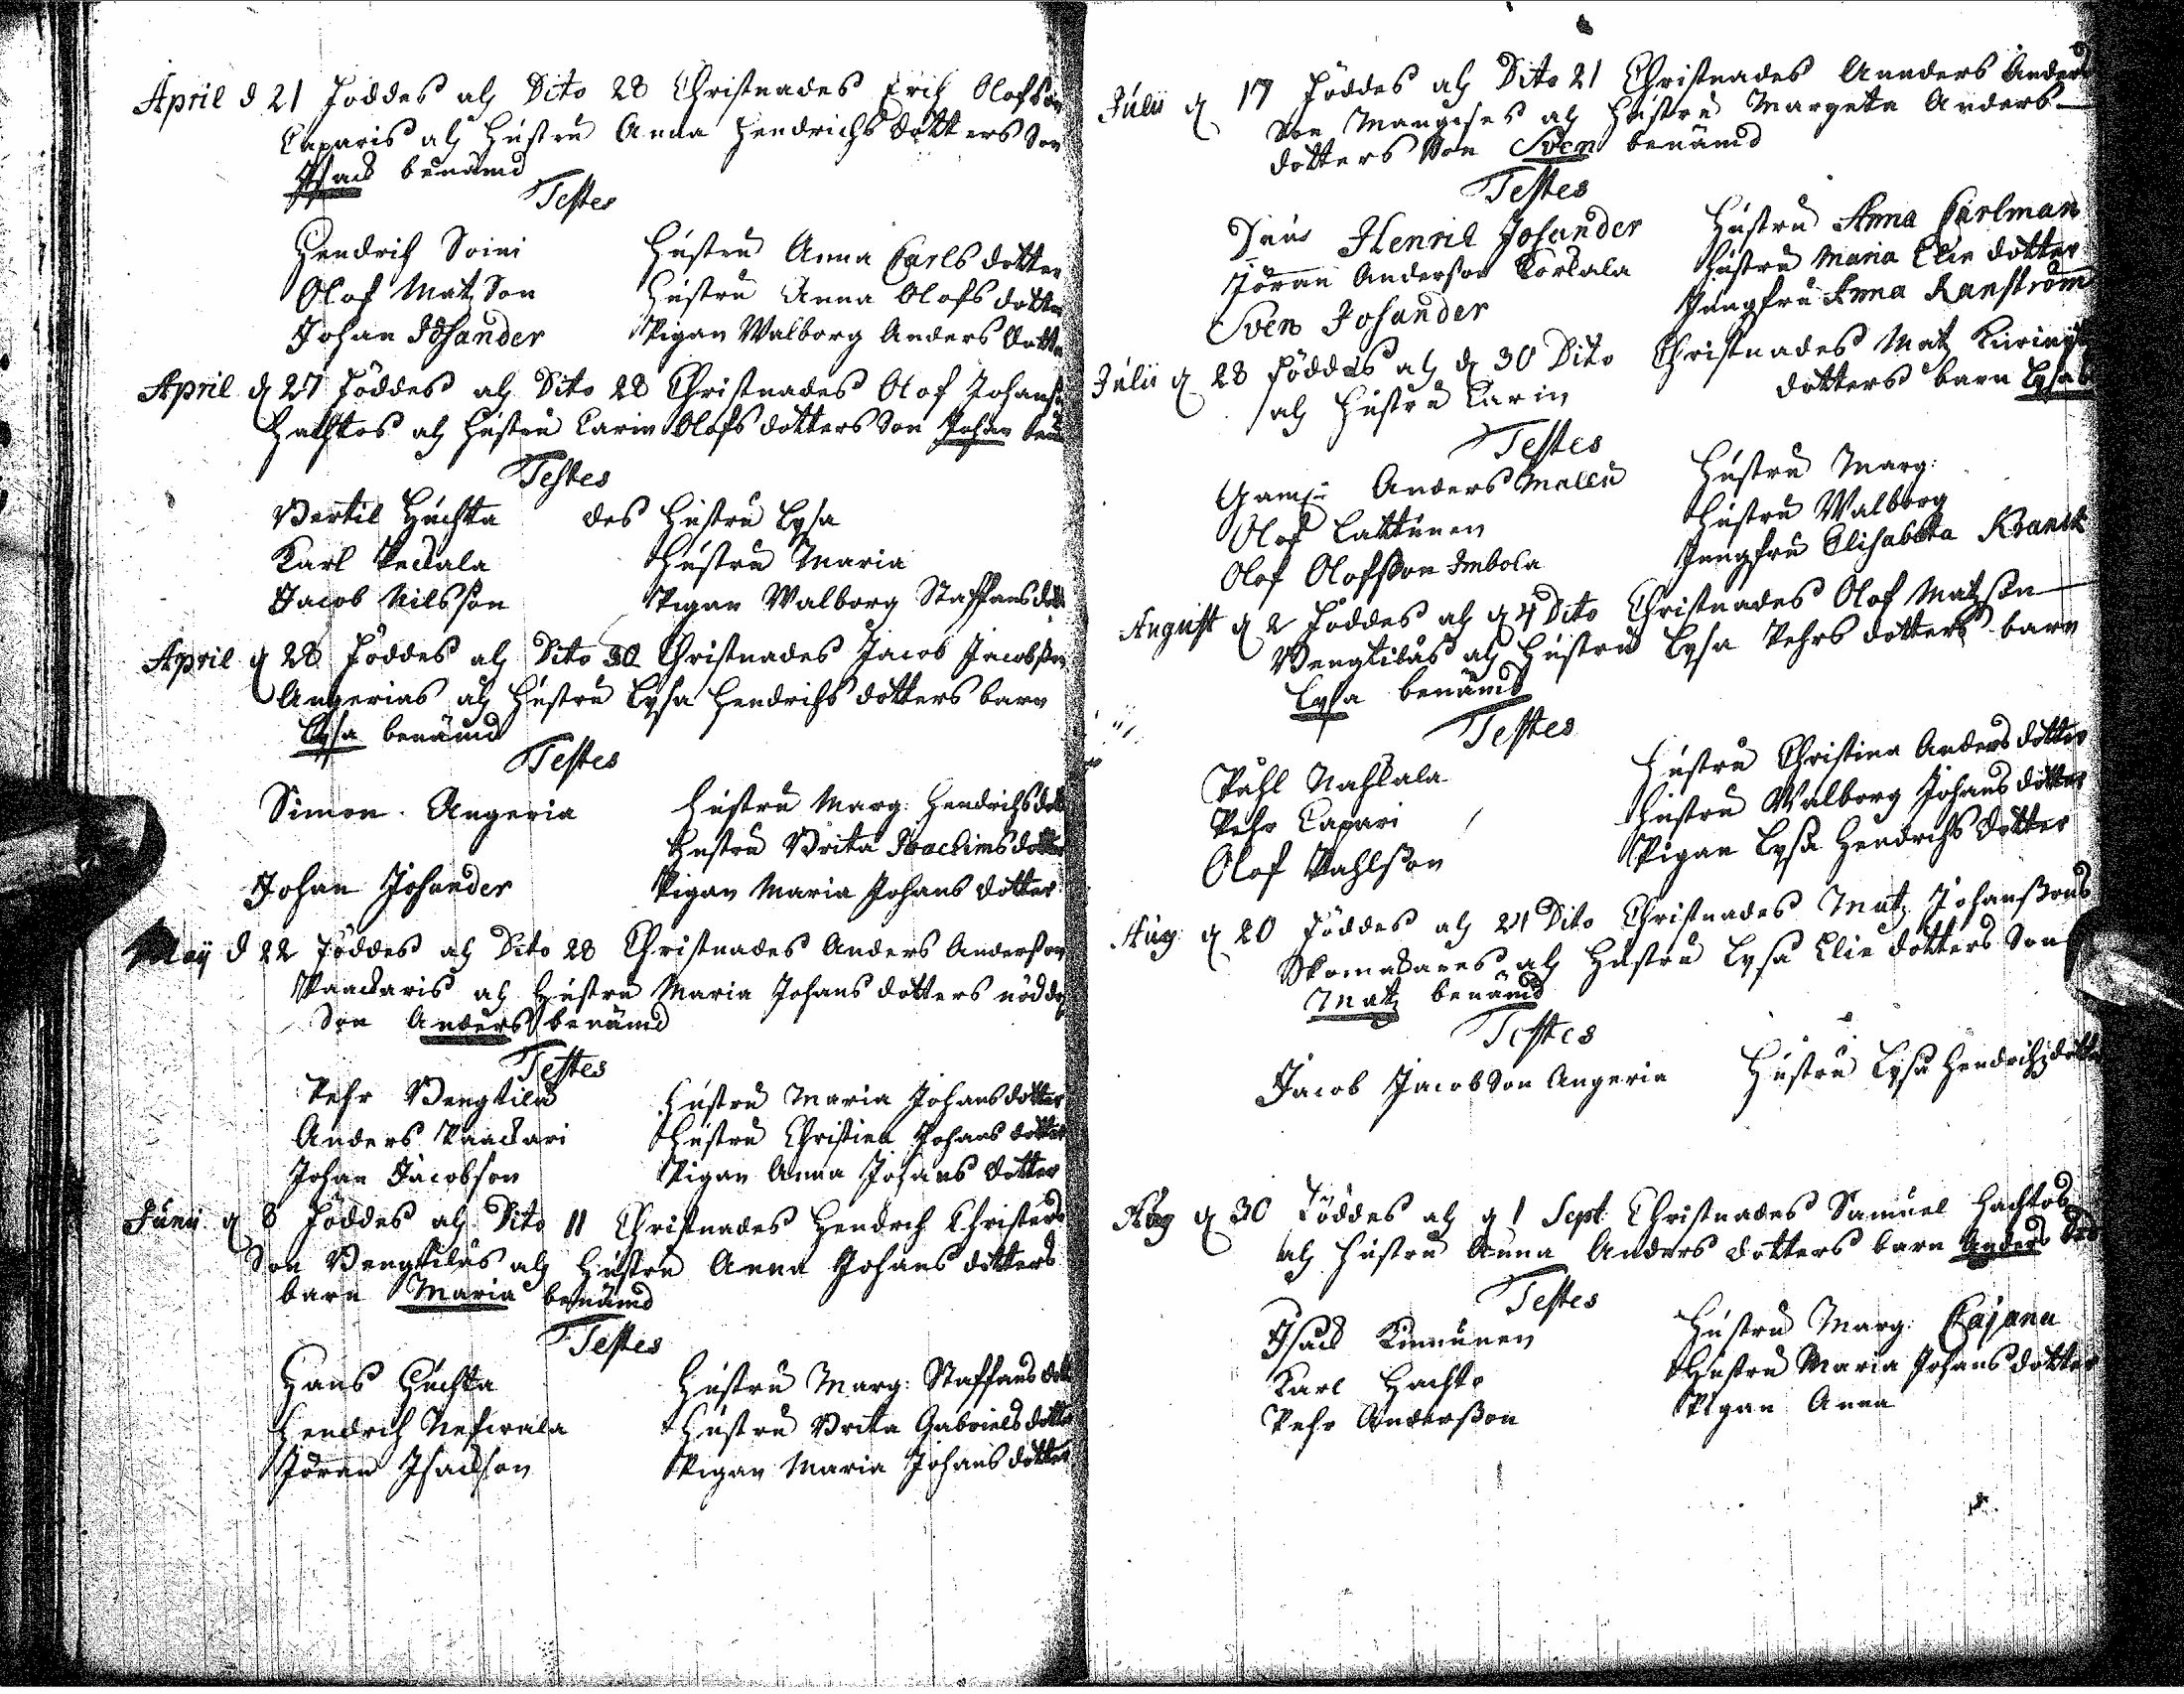 April d 21 föddes och Dito 28 Christnades Erich Olofson
Caparis och hustru Anna Hendrichs dotters Son
Isack benämd
Testes
Hendrich Soini Hustru Anna Carls dotter
Olof Matz Son Hustru Anna Olofs dotter
Johan Josander Pigan Walborg Anders dotter
April d 27 föddes och Dito 28 Christnades Olof Johans
Hachtos och hustru Carin Olofs dotters Son Johan
Testes
Bertil Huchta des Hustru Lysa
Karl Peckala Hustru Maria
Jacob Nilsson Pigan Walborg Staffansdott
April d 28 föddes och Dito 30 Christnades Jacob Jacobson
Angerias och Hustru Lysa Hendrichs dotters barn
Lysa benämd
Testes
Simon Angeria Hustru Marg: Hendrichsdott
Hustru Brita Joachimsdotter
Johan Josander Pigan Maria Johans dotter
Maij d 22 föddes och Dito 28 Christnades Anders Anderson
Paackaris och Hustru Maria Johans dotters
Son Anders benämd
Testes
Pehr Bengtila Hustru Maria Johansdotter
Anders Paackari Hustru Christina Johans dotter
Johan Jacobson Pigan Anna Johans dotter
Junii d 8 föddes och Dito 11 Christnades Hendrch Christers
Son Bengtilas och Hustru Anna Johans dotters
barn Maria benämd
Testes
Hans Huchta Hustru Marg: Staffans dott
Hendrch Hustru Brita Gabriels dotter
Jöran Isackson Pigan Maria Johans dotter
Julii d 17 föddes och Dito 21 Christnades Anders Anders
Son och Hustru Margeta Anders
dotters Son Sven benämd
Testes
Henric Josander Hustru Anna Carlman
Jöran Anderson Korkala Hustru Maria Elie dotter
Sven Josander Jungfru Anna Ranström
Julii d 28 föddes och d 30 Dito Christnades Matz
och Hustru Carin dotters barn Lysa
Testes
Anders Mallu Hustru Marg:
Olof Lattunen Hustru Walborg
Olof Olofsson Imbola Jungfru Elisabetta Kranck
August d 2 föddes och d 4 Dito Christnades Olof Matzson
Bengtilas och Hustru Lysa Pehrs dotters barn
Lysa benämd
Testes
Påhl Nahkala Hustru Christina Andersdotter
Pehr Capari Hustru Walborg Johansdotter
Olof Pahlson Pigan Lysa Hendrichs dotter
Aug: d 20 föddes och 21 Dito Christnades Matz Johanssons
Skomakares och Hustru Lysa Elie dotters Son
Matz benämd
Testes
Jacob Jacobson Angeria Hustru Lysa Hendrichs dotter
Aug d 30 föddes och d 1 Sept Christnades Samuel Hachtos
och Hustru Anna Anders dotters barn Anders
Testes
Isack Kinnunen Hustru Marg: Cajana
Karl Hachto Hustru Maria Johans dotter
Pehr Andersson Pigan Anna